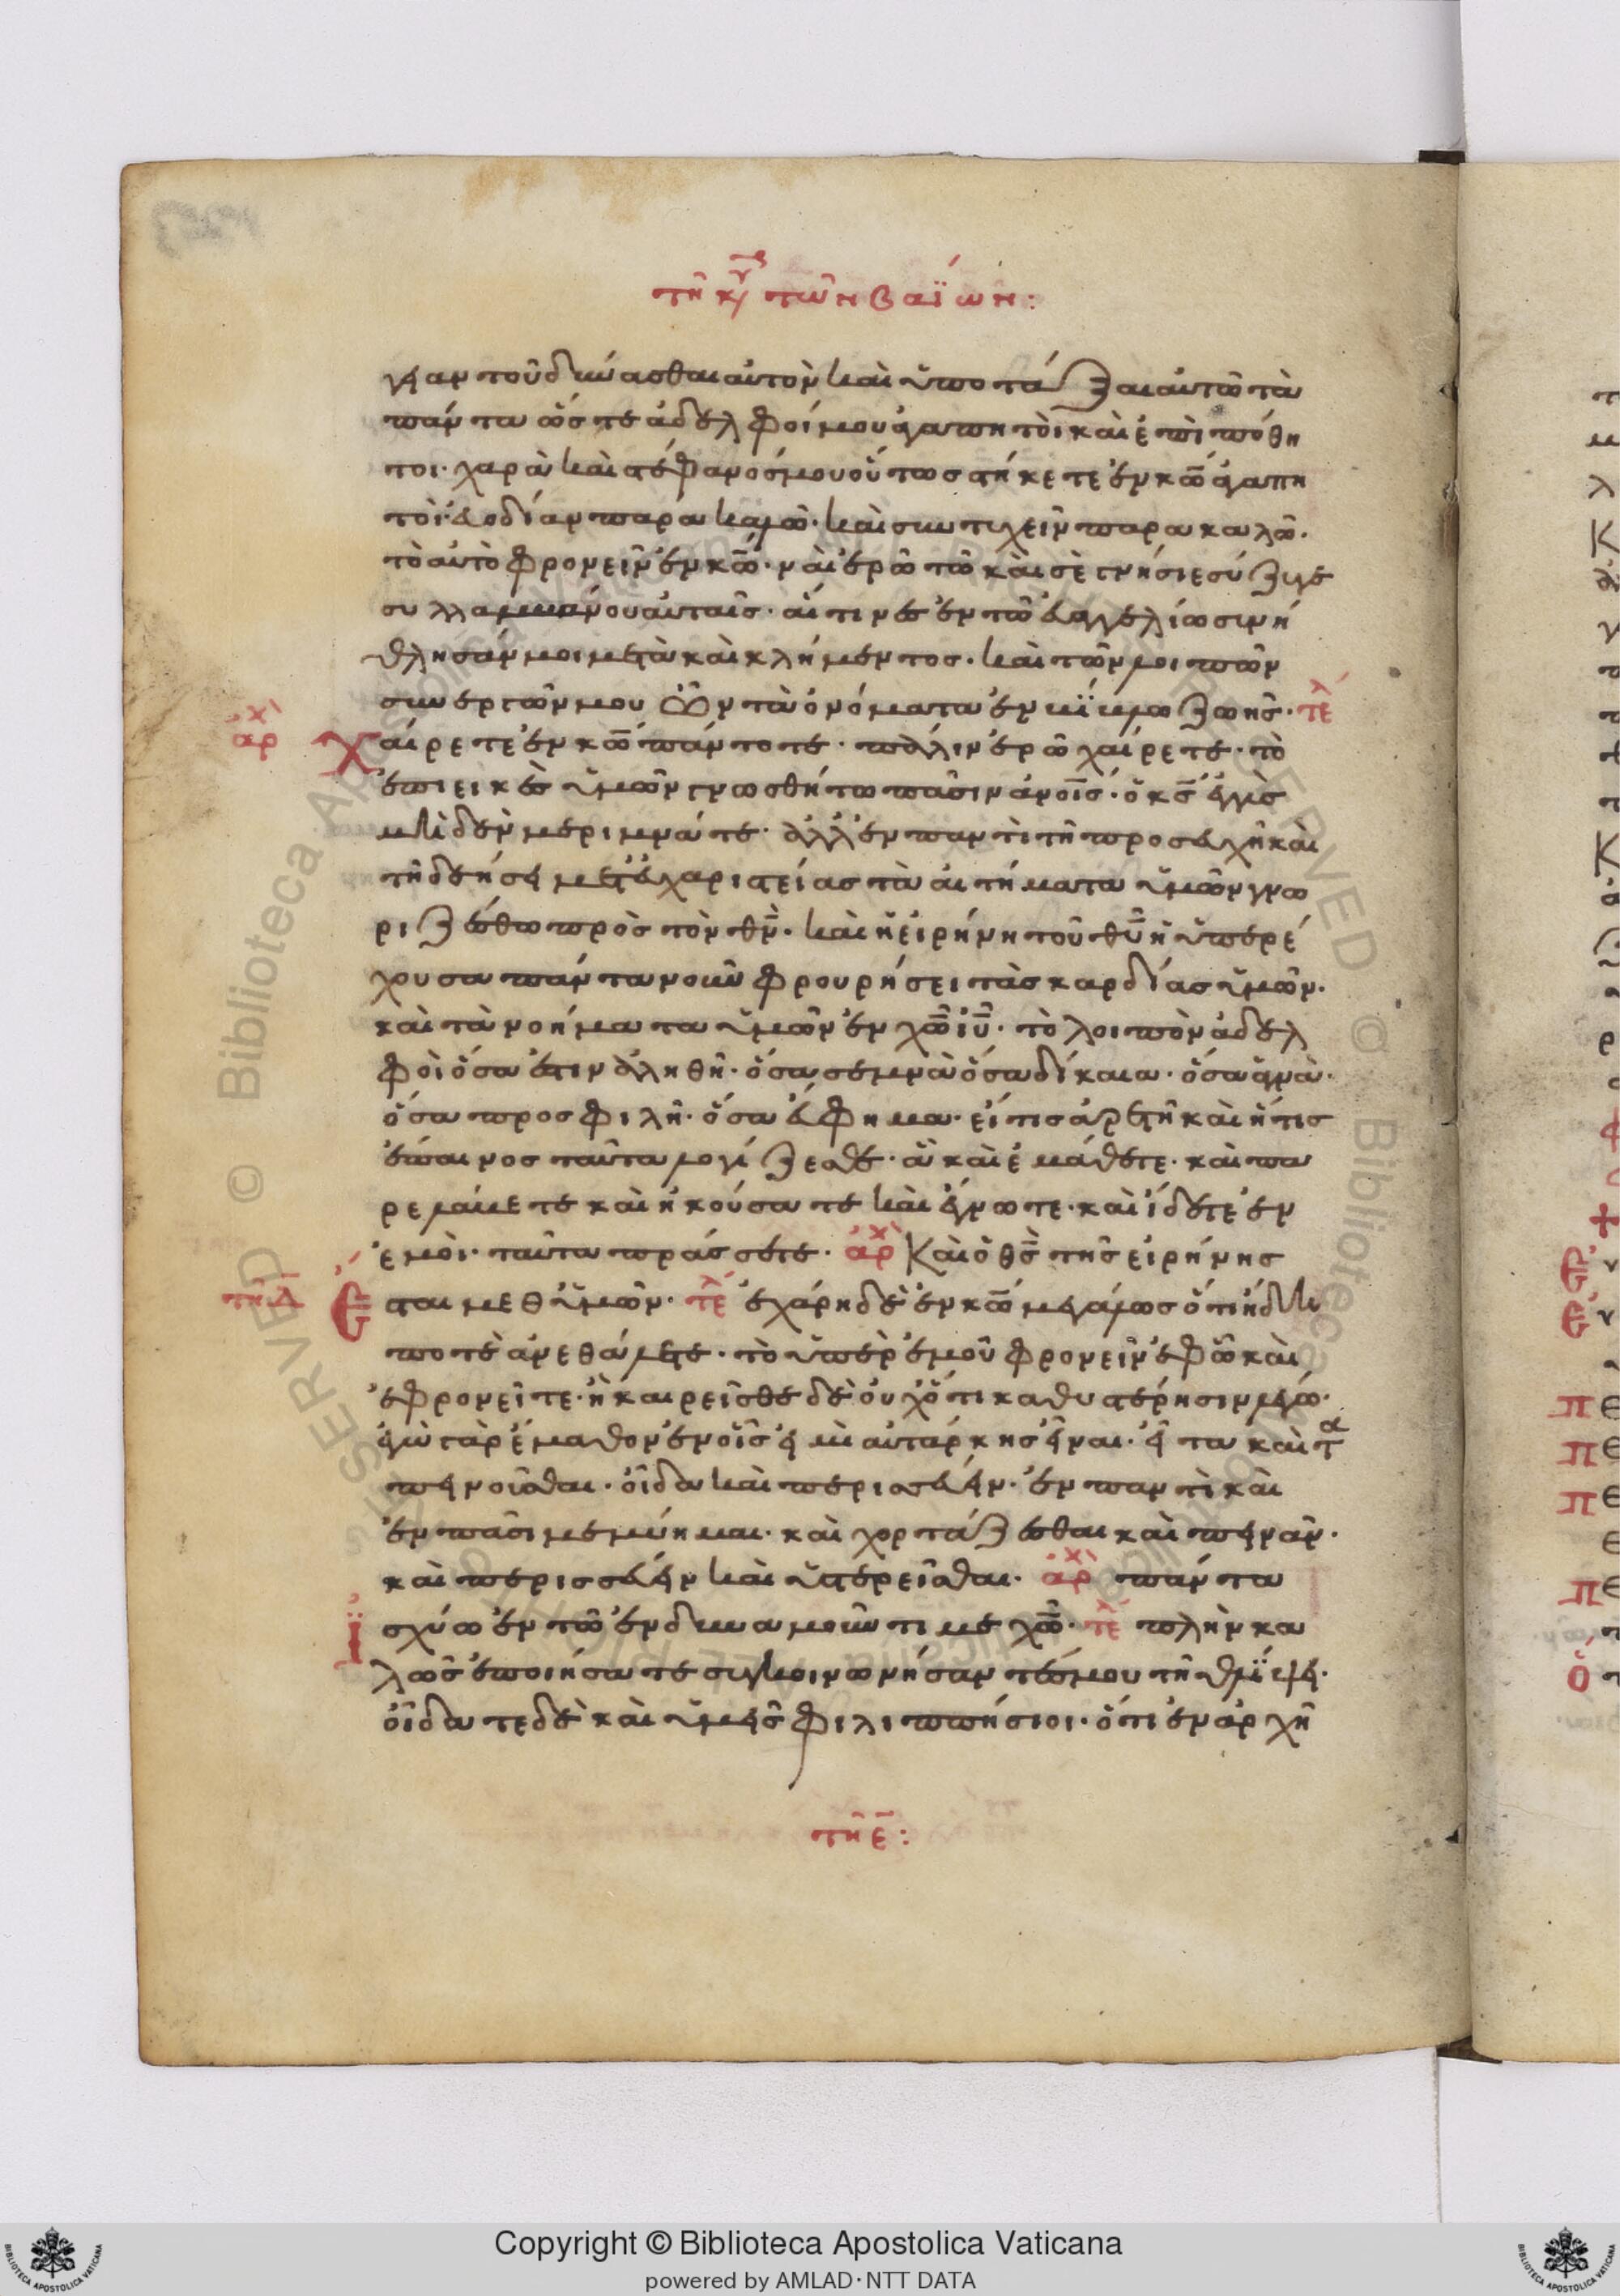 τῆ κυ τῶν βαΐων:
γειαν τοῦ δύνασθαι αὐτὸν καὶ ὑποτάξαι αὐτῶ τὰ
πάντα ὥστε ἀδελφοί μου ἀγαπητοὶ καὶ ἐπιπόθη
τοι· χαρὰ καὶ στέφανός μου οὕτως στήκετε ἐν κω ἀγαπη
τοί· εὐοδίαν παρακαλῶ· καὶ συντιχεῖν παρακαλῶ·
τὸ αὐτὸ φρονεῖν ἐν κω· ναὶ ἐρωτῶ καὶ σὲ γνήσιε σύζυγε
συλλαμβάνου αὐταῖς· αἵτινες ἐν τῶ εὐαγγελίω συνή
θλησάν μοι μετὰ καὶ κλήμεντος· καὶ τῶν λοιπῶν
συνεργῶν μου ὧν τὰ ὀνόματα ἐν βίβλω ζωῆς· τε
αρχ Χαίρετε ἐν κω πάντοτε· πάλιν ἐρῶ χαίρετε· τὸ
ἐπιεικὲς ὑμῶν γνωσθήτω πᾶσιν ανοις· ὁ κς ἐγγὺς
μηδὲν μεριμνᾶτε· ἀλλ' ἐν παντὶ τῆ προσευχῆ καὶ
τῆ δεήσει μετ' εὐχαριστείας τὰ αἰτήματα ὑμῶν γνω
ριζέσθω πρὸς τὸν θν· καὶ ἡ εἰρήνη τοῦ θυ ἡ ὑπερέ
χουσα πάντα νοῦν φρουρήσει τὰς καρδίας ὑμῶν·
καὶ τὰ νοήματα ὑμῶν ἐν χω ιυ· τὸ λοιπὸν ἀδελ
φοὶ ὅσα ἐστιν ἀληθῆ· ὅσα σεμνὰ ὅσα δίκαια· ὅσα ἁγνὰ·
ὅσα προσφιλῆ· ὅσα εὔφημα· εἴ τις ἀρετὴ καὶ ἤ τις
ἔπαινος ταῦτα λογίζεσθε· ἃ καὶ ἐμάθετε· καὶ πα
ρελάβετε καὶ ἠκούσατε καὶ ἔγνωτε· καὶ ἴδετε ἐν
ἐμοὶ· ταῦτα πράσσετε· αρχ Καὶ ὁ θς τῆς εἰρήνης
τῆ δ Ἔσται μεθ' ὑμῶν· τε ἐχάρην δὲ ἐν κω μεγάλως ὅτι ἤδη
ποτὲ ἀνεθάλετε· τὸ ὑπὲρ ἐμοῦ φρονεῖν ἐφ' ὧ καὶ
ἐφρονεῖτε· ἠκαιρεῖσθε δὲ οὐχ ὅτι καθ' ὑστέρησιν λέγω·
ἐγὼ γὰρ ἔμαθον ἐν οἷς εἰμὶ αὐτάρκης εἶναι·
πεινοῦσθαι· οἶδα καὶ περισσεύειν· ἐν παντὶ καὶ
ἐν πᾶσι μεμύημαι· καὶ χορτάζεσθαι καὶ πεινᾶν·
καὶ περισσεύειν καὶ ὑστερεῖσθαι· αρχ πάντα
ἰσχύω ἐν τῶ ἐνδυναμοῦντί με χω· τε πλὴν κα
λῶς ἐποιήσατε συγκοινωνήσαντές μου τῆ θλίψει·
οἴδατε δὲ καὶ ὑμεῖς φιλιππήσιοι· ὅτι ἐν ἀρχῆ
τῆ ε:
Copyright © Biblioteca Apostolica Vaticana
powered by AMLAD·NTT DATA